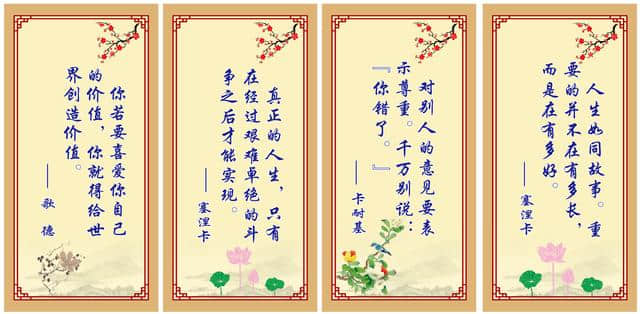 你若要喜爱你自己
的价值，你就得给世
界创造价值。
——歌德
真正的人生，只有
在经过艰难卓绝的斗
争之后才能实现。
——塞涅卡
对别人的意见要表
示尊重。千万别说：
『你错了。』
——卡耐基
人生如同故事。重
要的并不在有多长，
而是在有多好。
——塞涅卡